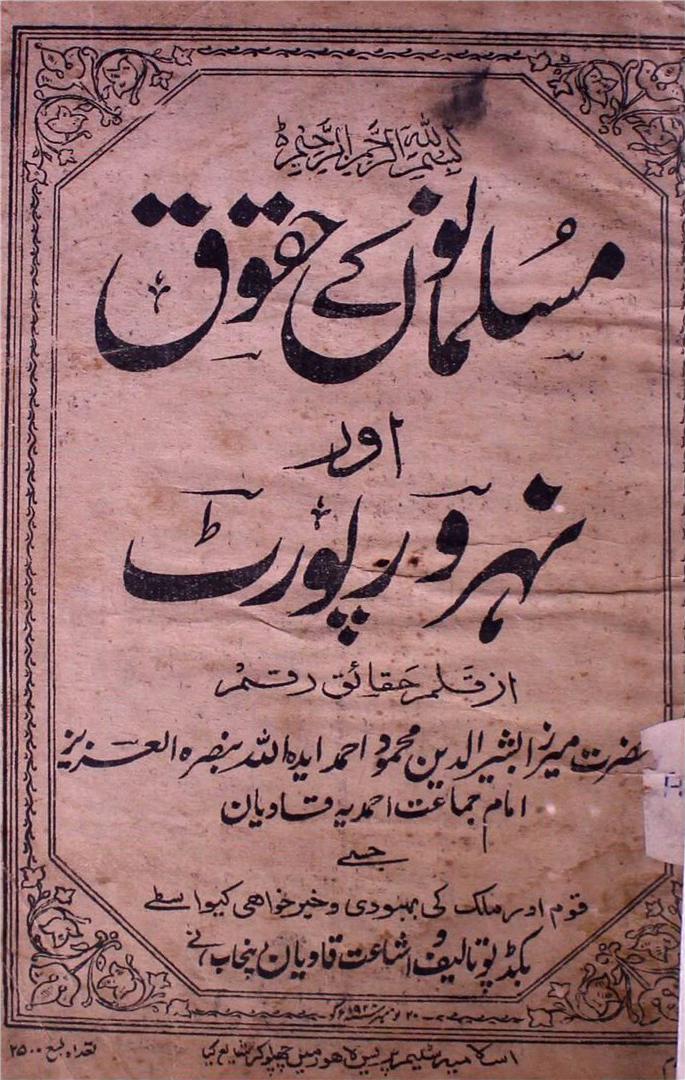 بسم اللہ الرحمن الرحیم
مسلمانوں کے حقوق
اور
نہرو رپورٹ
از قلم حقائق رقم
حضرت میرزا بشیر الدین محمود احمد ایدہ اللہ بنصرہ العزیز
امام جماعت احمدیہ قادیان
جسے
قوم اور ملک کی بہبودی و خیر خواہی کیواسطے
بکڈپو تالیف و اشاعت قادیان پنجاب نے
۲۰ نومبر کو
اسلامیہ سٹیم پریس لاہور میں چھپوا کر شایع کیا
تعداد طبع ۲۵۰۰